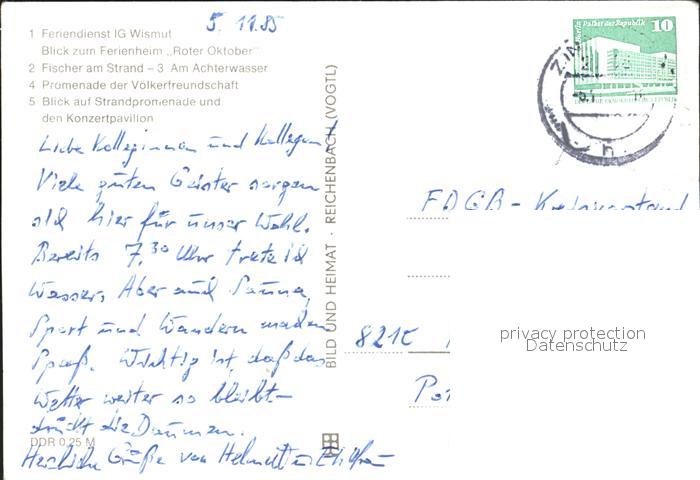 5. 11.85
1 Feriendienst IG Wismut
Blick zum Ferienheim „Roter Oktober"
2 Fischer am Strand – 3 Am Achterwasser
4 Promenade der Völkerfreundschaft
5 Blick auf Strandpromenade und
den Konzertpavillon
Liebe Kolleginnen und Kollegen!
Viele guten Geister sorgen
sich hier für unser Wohl.
Bereits 7.30 Uhr trete ich
Wasser. Aber auch Sauna,
Sport und Wandern machen
Spaß. Wichtig ist, daß das
Wetter weiter so bleibt –
drückt die Daumen.
Herzliche Grüße von Helmut
DDR 0,25 M
BILD UND HEIMAT · REICHENBACH (VOGTL)
Berlin Palast der Republik
10
FDGB - Kreisvorstand
privacy protection
Datenschutz